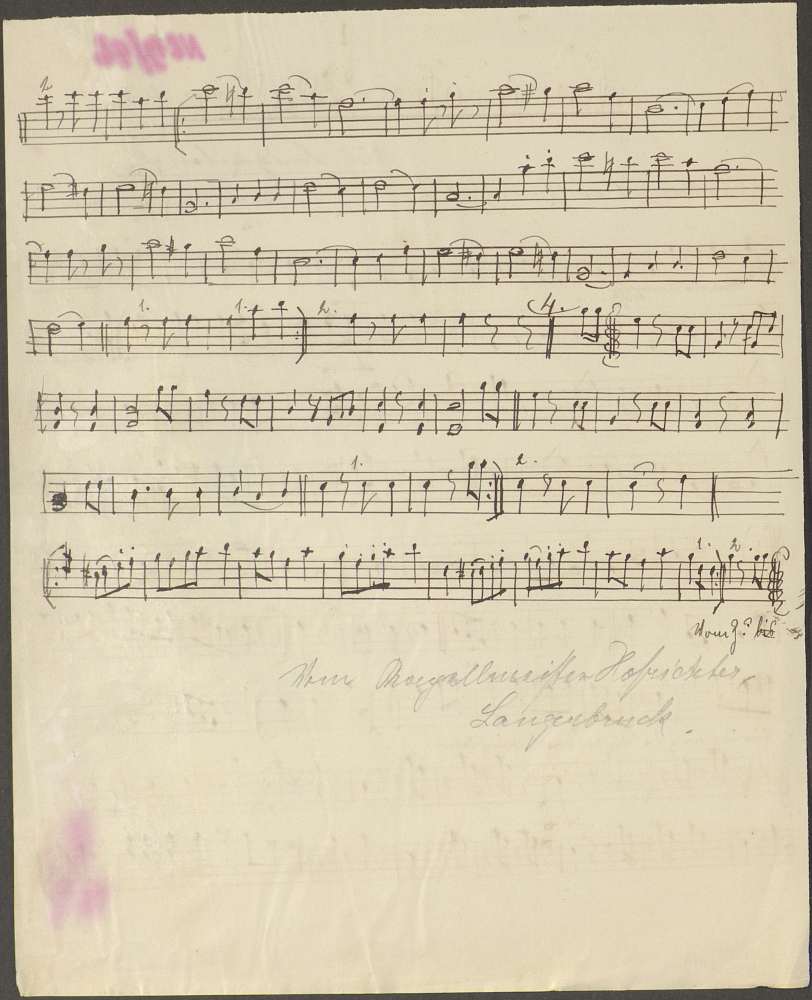 1. 1. 2. 4.
1. 2.
1. 2.
Vom
Vom Kapellmeister Hofrichter,
Langenbruck.